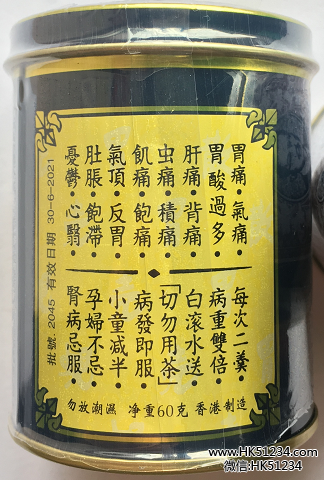 胃痛•氣痛•
胃酸過多•
肝痛•背痛•
虫痛•積痛•
飢痛•飽痛•
氣頂•反胃•
肚脹•飽滯•
憂鬱•心翳•
每次二羹•
病重雙倍•
白滚水送•
「切勿用茶」
病發即服•
小童减半•
孕婦不忌•
腎病忌服•
勿放潮濕 净重60克 香港制造
批號: 2045 有效日期 30-6-2021
www.HK51234.com
微信:HK51234